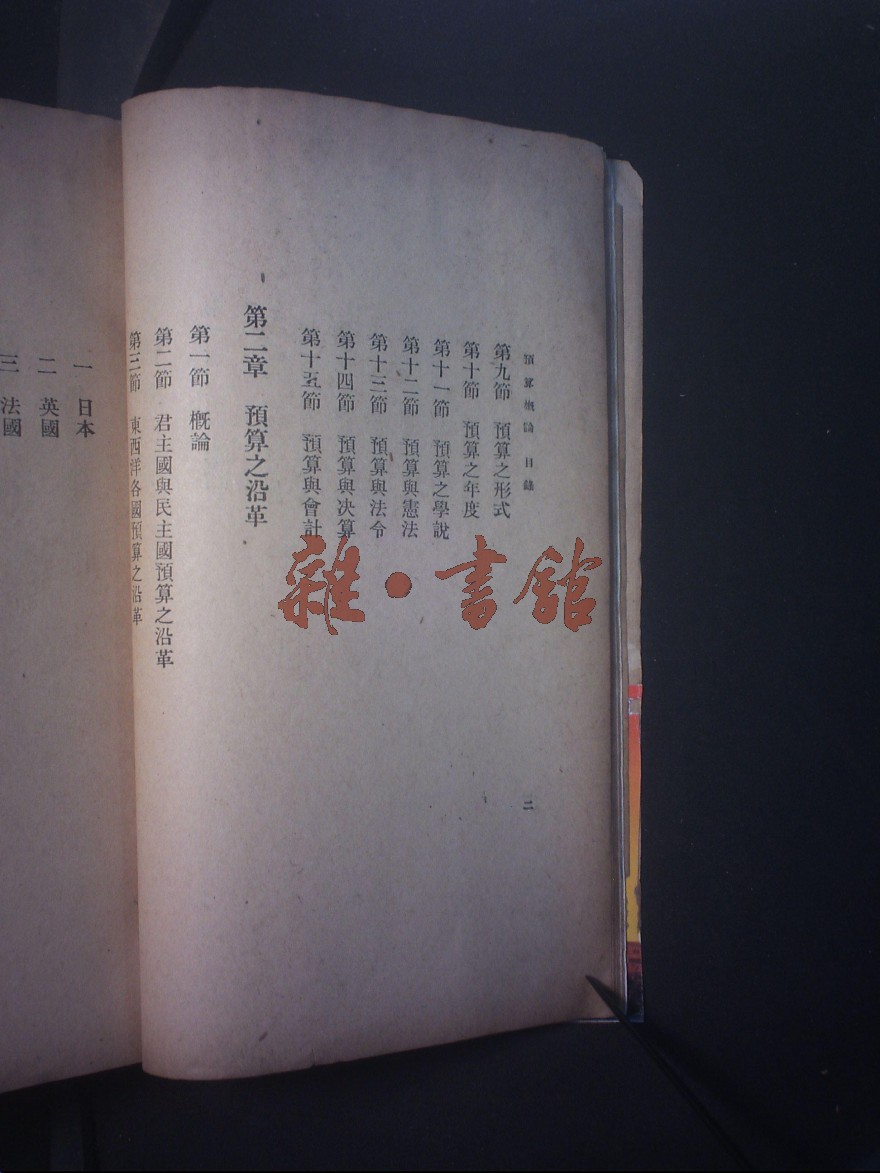 預算概論 目錄
第九節 預算之形式
第十節 預算之年度
第十一節 預算之學說
第十二節 預算與憲法
第十三節 預算與法令
第十四節 預算與決算
第十五節 預算與會計
第二章 預算之沿革
第一節 概論
第二節 君主國與民主國預算之沿革
第三節 東西洋各國預算之沿革
二
一 日本
二 英國
三 法國
雜·書館